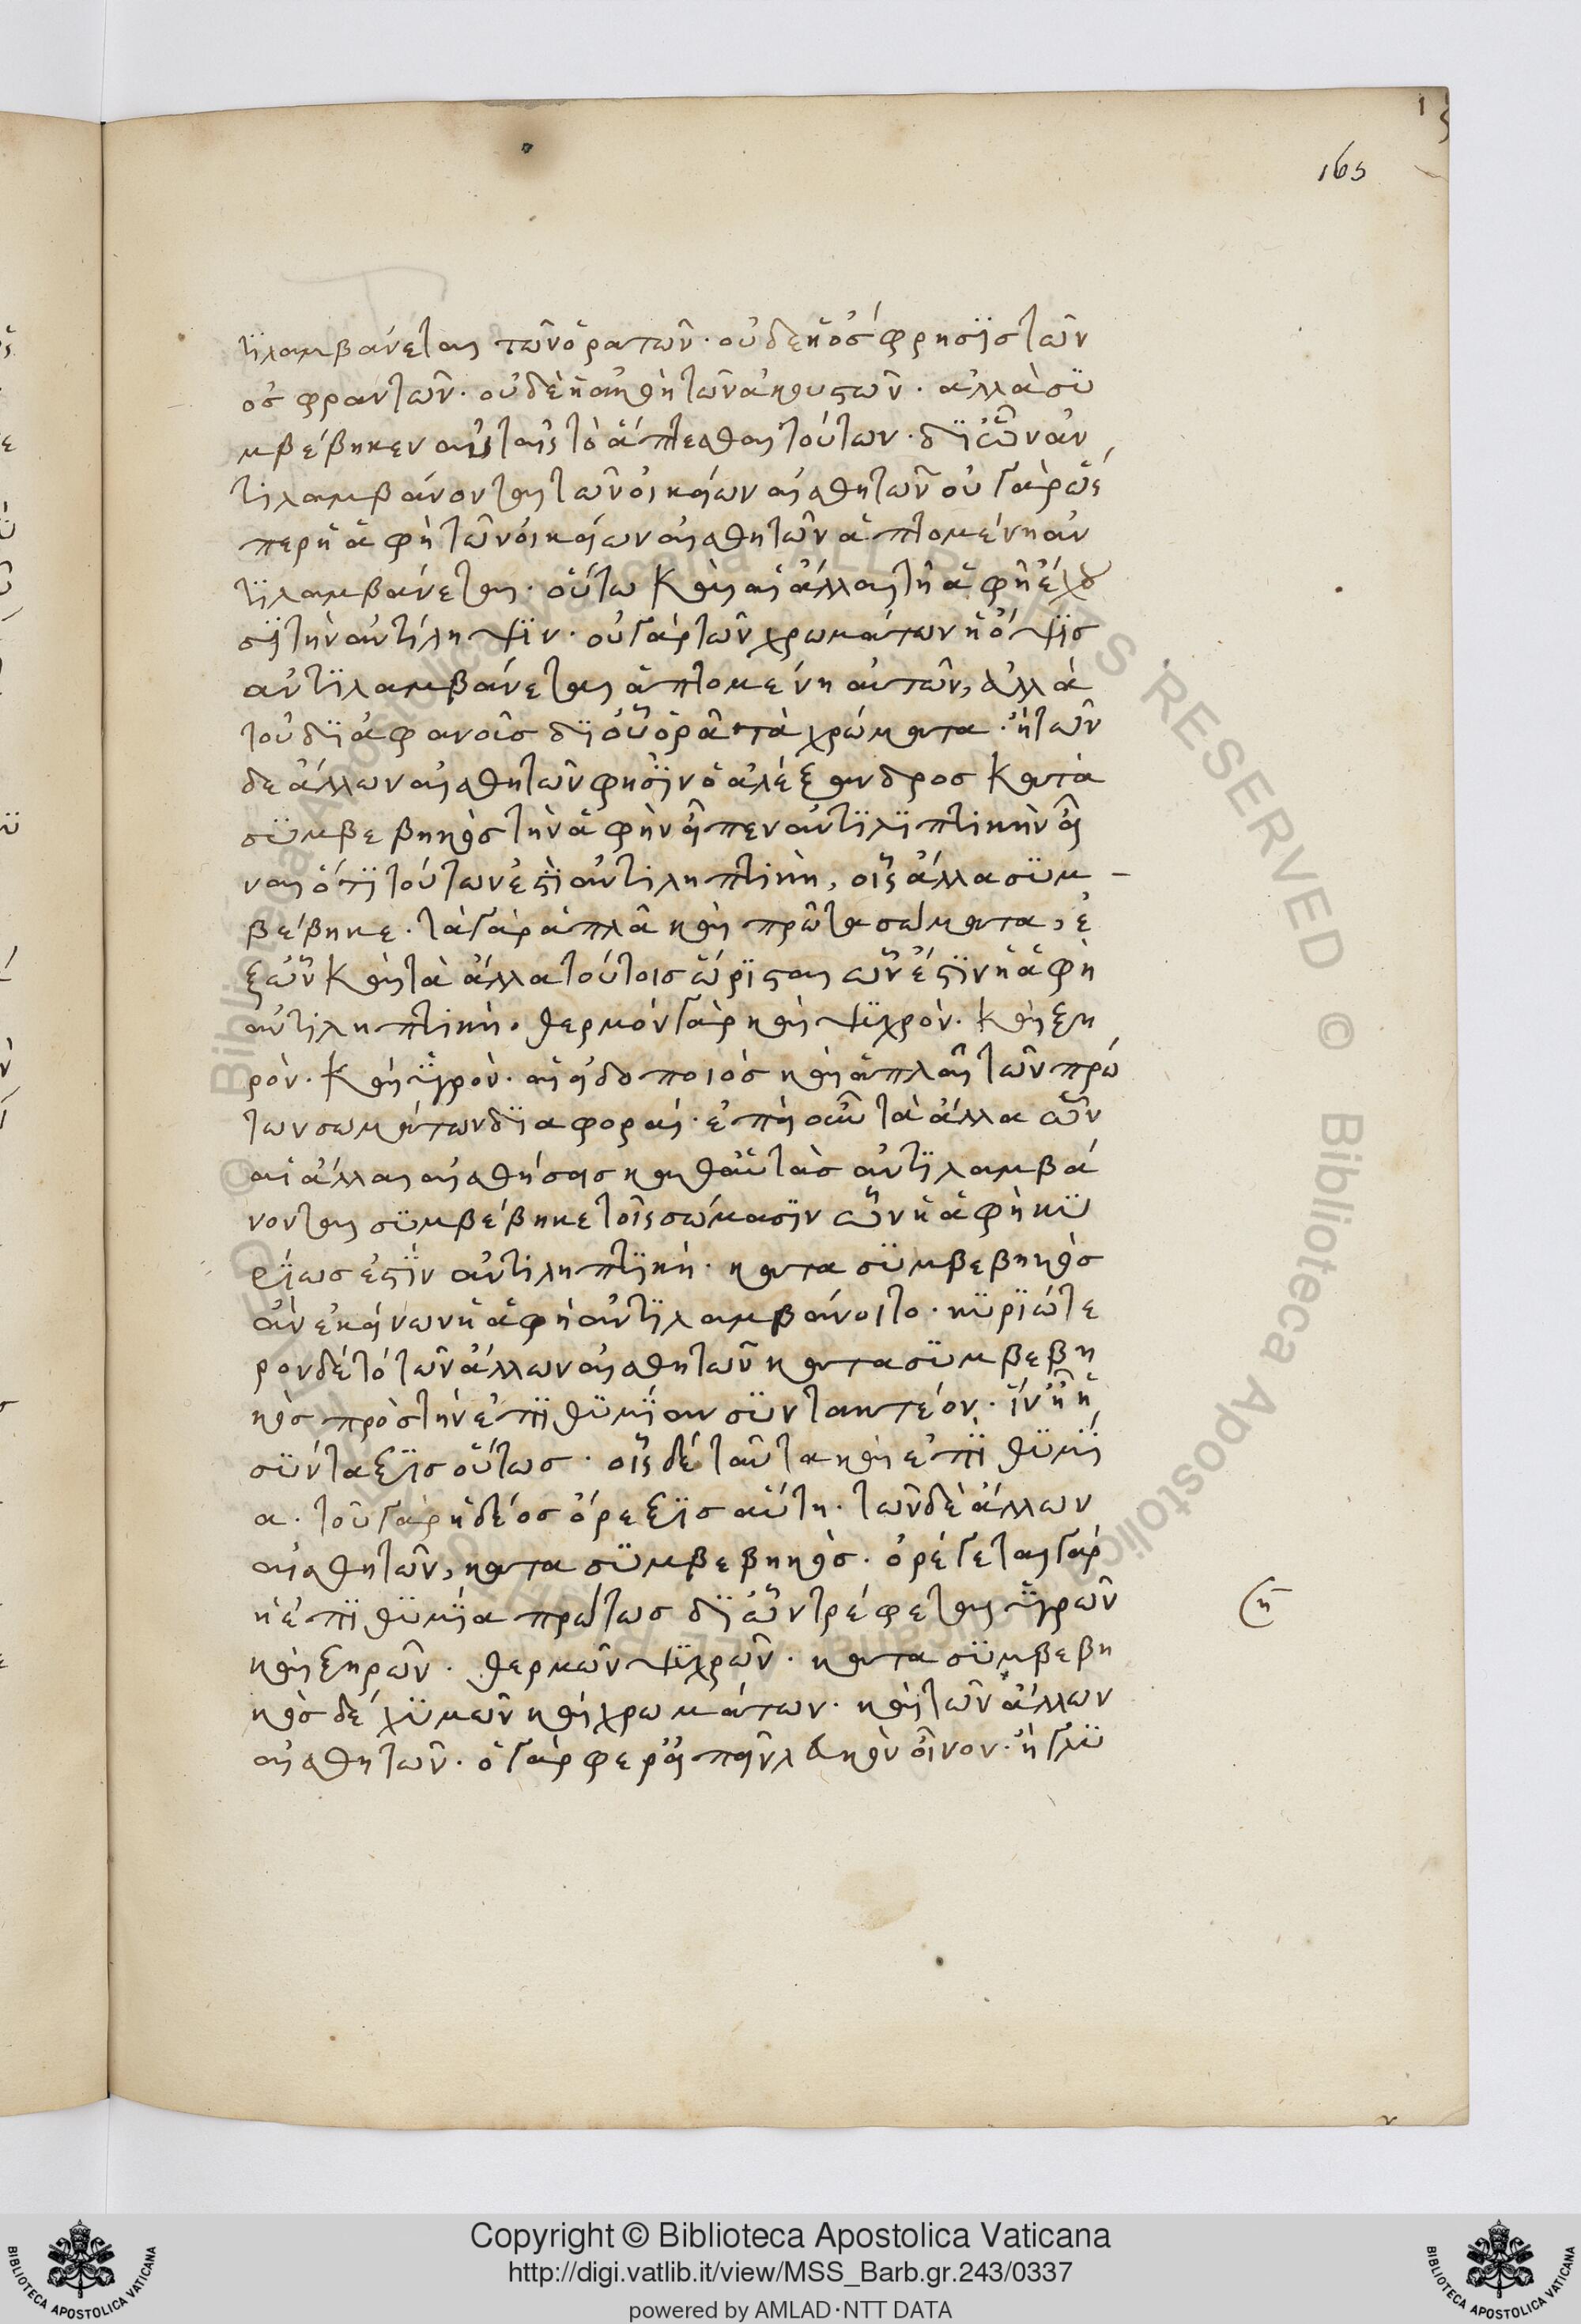 165
τιλαμβάνεται τῶν ὁρατῶν· οὐδὲ ἡ ὄσφρησϊς τῶν
ὀσφραντῶν· οὐδὲ ἡ ἀκοὴ τῶν ἀκουστῶν· ἀλλὰ σϋ
μβέβηκεν αὐταῖς τὸ ἅπτεσθαι τούτων· δϊ ὧν ἀν
τιλαμβάνονται τῶν οἰκείων αἰσθητῶν οὐ γὰρ ὥς
περ ἡ ἁφὴ τῶν οἰκείων αἰσθητῶν ἁπτομένη ἀν
τϊλαμβάνεται· οὕτω καὶ αἱ ἄλλαι τῇ ἁφῇ ἔχου
σϊ τὴν ἀντίληψϊν· οὐ γὰρ τῶν χρωμάτων ἡ ὄψϊς
ἀντϊλαμβάνεται ἁπτομένη αὐτῶν, ἀλλὰ
τοῦ δϊαφανοῦς δϊ οὗ ὁρᾷ τὰ χρώματα· ἢ τῶν
δε ἄλλων αἰσθητῶν φησῒν ὁ ἀλέξανδρος κατὰ
σϋμβεβηκὸς τὴν ἁφὴν εἶπεν ἀντϊλϊπτικὴν εἶ
ναι ὅτϊ τούτων ἐστῒ ἀντιληπτικὴ, οἷς ἄλλα σϋμ –
βέβηκε· τὰ γὰρ ἁπλᾶ καὶ πρῶτα σώματα, ἐ
ξ ὧν καὶ τὰ ἄλλα τούτοις ὥρϊσται ὧν ἐστϊν ἡ ἁφὴ
ἀντιληπτικὴ· θερμὸν γὰρ καὶ ψϋχρὸν· καὶ ξη
ρὸν· καὶ ϋγρὸν· αἱ εἰδοποιὸς καὶ ἁπλαῖ τῶν πρώ
των σωμάτων δϊαφοραὶ· ἐπεὶ οὖν τὰ ἄλλα ὧν
αἱ ἄλλαι αἰσθήσεις καθαὑτὰς ἀντϊλαμβά
νονται σϋμβέβηκε τοῖς σώμασϊν ὧν ἡ ἁφὴ κϋ
ρϊως ἐστῒν ἀντιληπτϊκή· κατα σϋμβεβηκὸς
ἂν ἐκείνων ἡ ἁφὴ ἀντϊλαμβάνοιτο· κϋρϊώτε
ρον δὲ τὸ τῶν ἄλλων αἰσθητῶν κατα σϋμβεβη
κὸς πρὸς τὴν ἐπϊθϋμΐαν σϋντακτέον· ἵν ᾖ ἡ
σϋνταξϊς οὕτως· οἷς δὲ ταῦτα καὶ ἐπϊθϋμΐ
α· τοῦ γὰρ ἡδέος ὄρεξϊς αὕτη· τῶν δὲ ἄλλων
αἰσθητῶν, κατα σϋμβεβηκὸς· ὀρέγεται γὰρ
ἡ ἐπϊθϋμΐα πρώτως δϊ ὧν τρέφεται ϋγρῶν
καὶ ξηρῶν· θερμῶν ψϋχρῶν· κατα σϋμβεβη
κὸς δὲ χϋμῶν καὶ χρωμάτων· καὶ τῶν ἄλλων
αἰσθητῶν· ὁ γὰρ φερ εἰπεῖν λευκὸν οἶνον· ἢ γλϋ
Copyright © Biblioteca Apostolica Vaticana
http://digi.vatlib.it/view/MSS_Barb.gr.243/0337
powered by AMLAD·NTT DATA